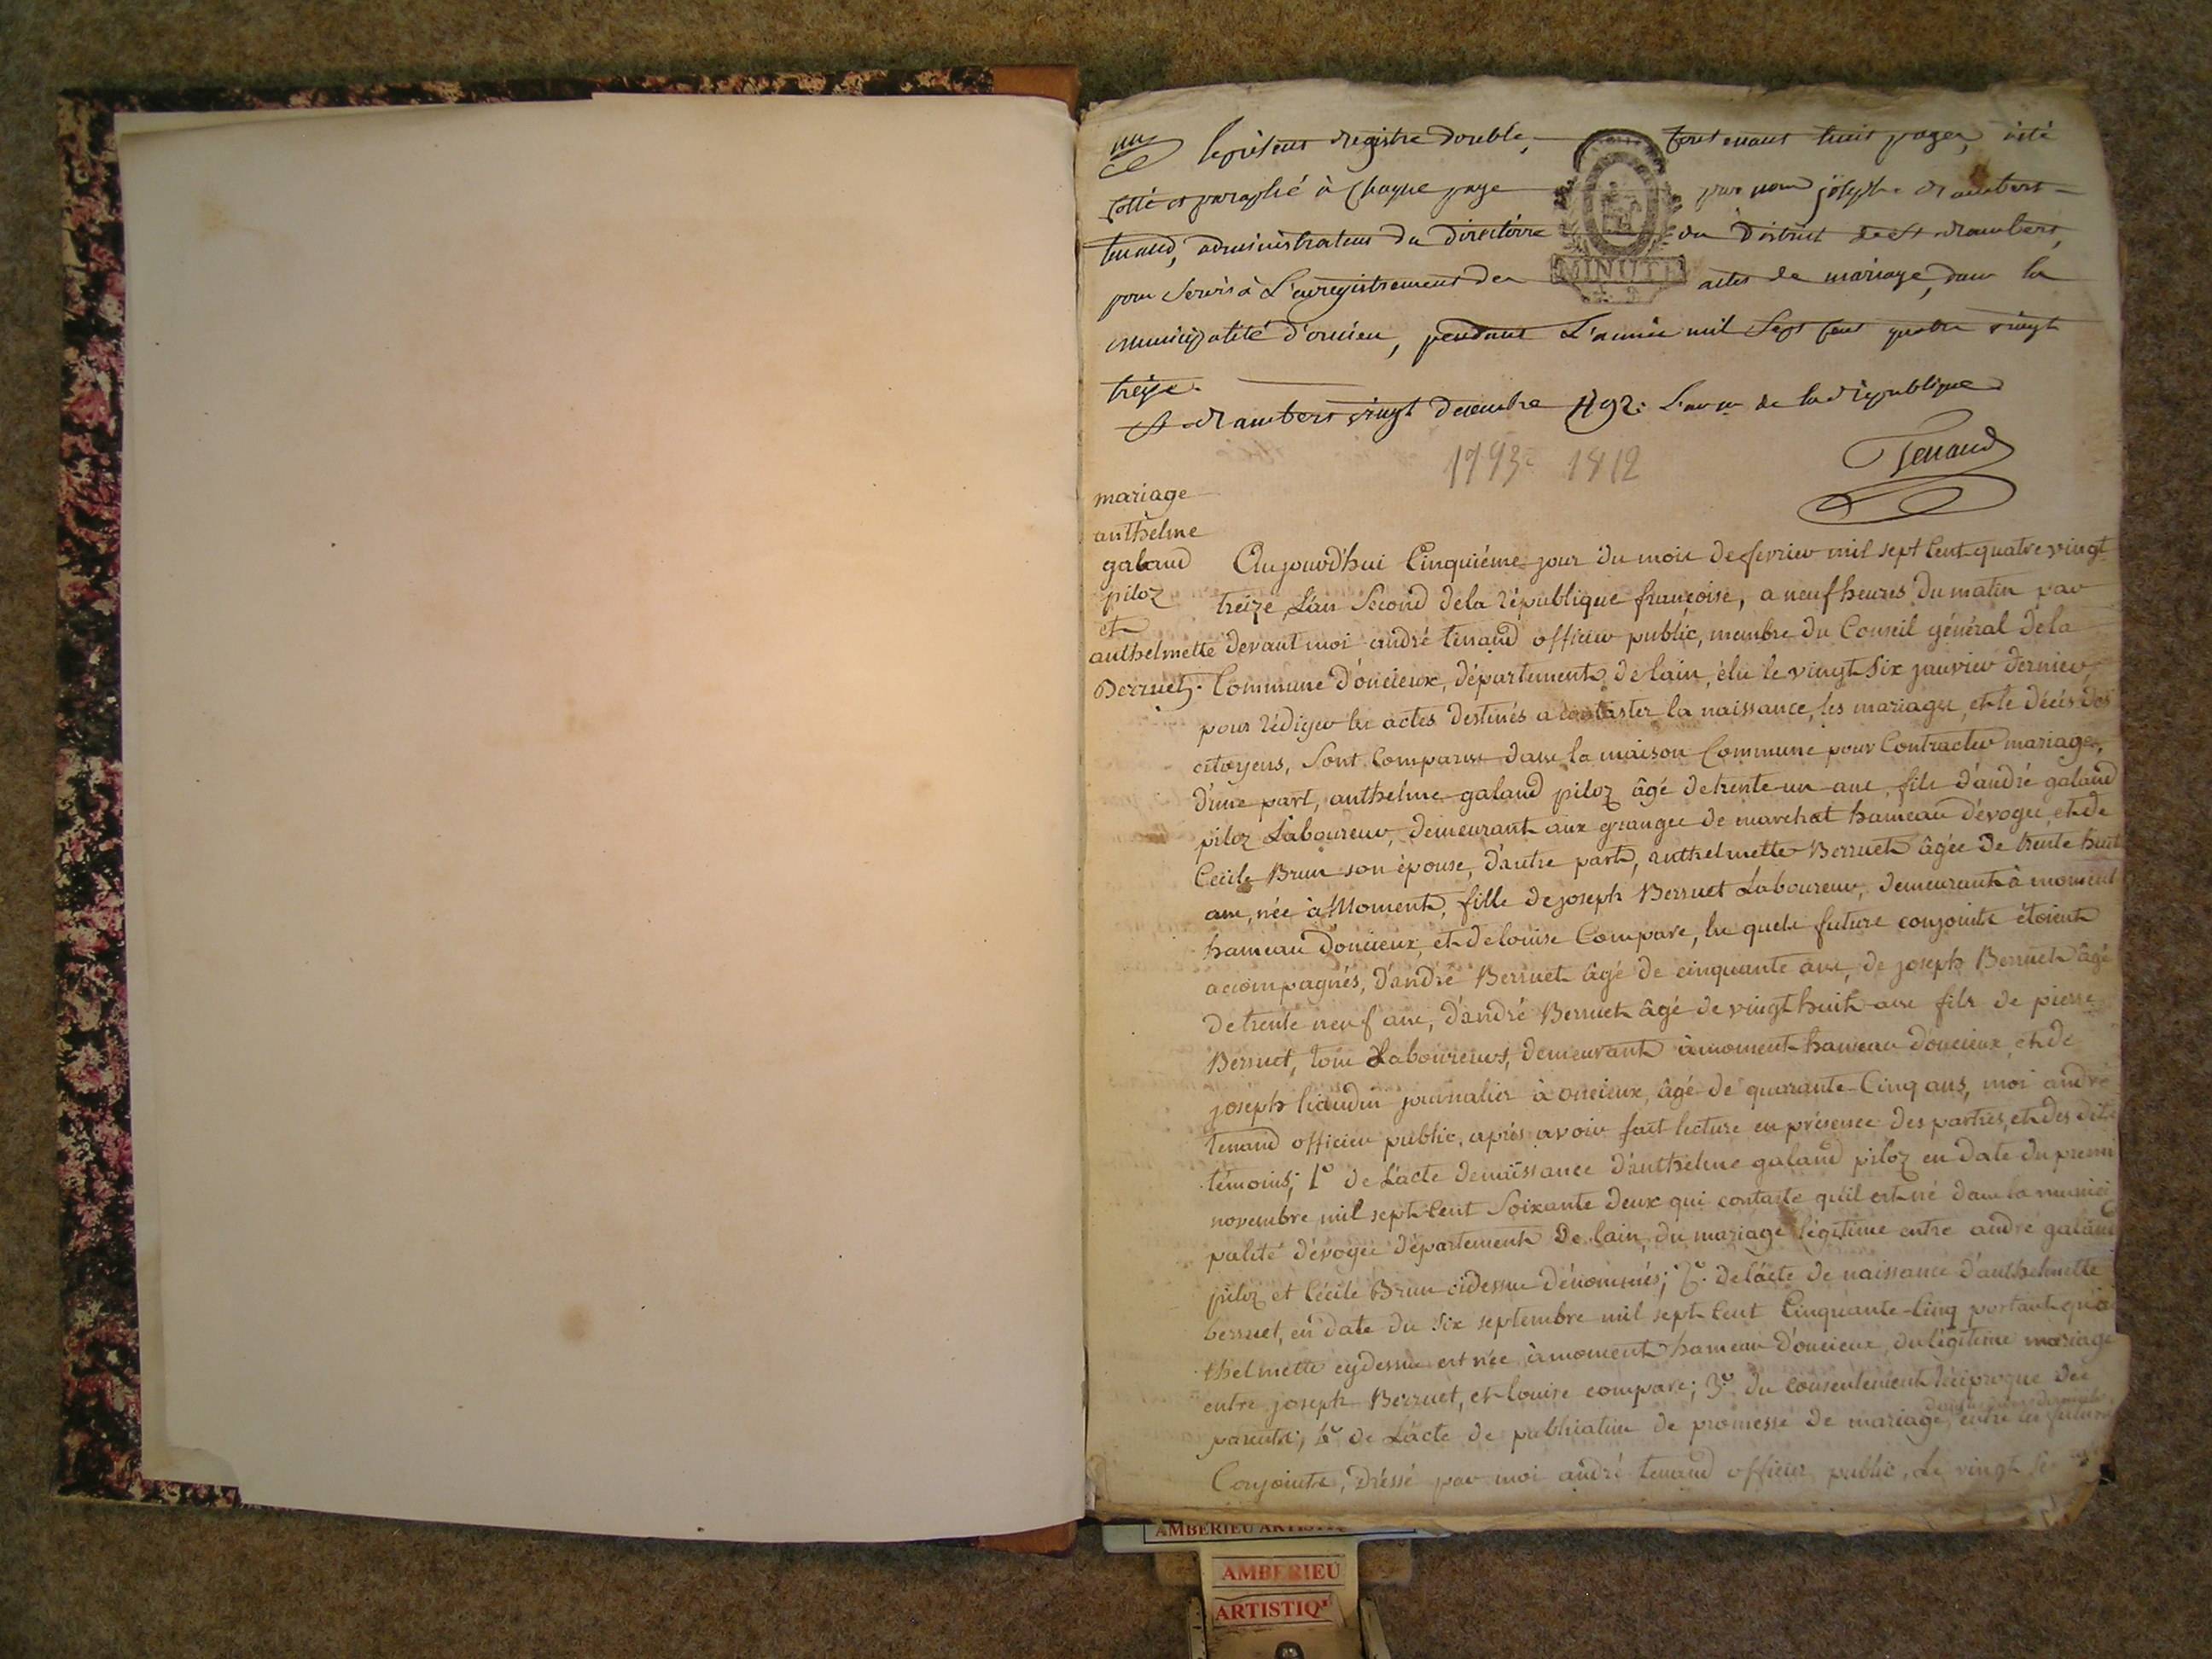 un
le présent registre double, contenant huit pages, a été
cotté et paraphé à chaque page par nous joseph rambert
tenand, administrateur du directoire du District de St rambert,
pour servir à L'enregistrement des actes de mariage, dans la
municipalité d'oncieu, pendant L'année mil sept cent quatre vingt
treize.
St rambert vingt decembre 1792. L'an 1er de la République
Tenand
MINUTE
1793 = 1812
mariage
anthelme
galand
piloz
et
anthelmette
Berruet.
Aujourd'hui Cinquiéme jour du mois de fevrier mil sept Cent quatre vingt
treize L'an Second de la république françoise, a neuf heures du matin par
devant moi andré tenand officier public, membre du Conseil général de la
Commune d'oncieux, département de lain, élu le vingt Six janvier dernier,
pour rédiger les actes destinés a constater la naissance, les mariages, et le décés des
citoyens, Sont Comparus dans la maison Commune pour Contracter mariage,
d'une part, anthelme galand piloz âgé de trente un ans, fils d'andré galand
piloz Laboureur, demeurant aux granges de marchat hameau d'évoges, et de
Cécile Brun son épouse, d'autre part, anthelmette Berruet âgée de trente huit
ans, née à Moment, fille de joseph Berruet Laboureur, demeurant à moment
hameau d'oncieux, et de louise Compare, les quels futurs conjoints étoient
accompagnés, d'andré Berruet âgé de cinquante ans, de joseph Berruet âgé
de trente neuf ans, d'andré Berruet âgé de vingt huit ans fils de pierre
Berruet, tous Laboureurs, demeurant à moment hameau d'oncieux et de
joseph liaudin journalier à oncieux, âgé de quarante-Cinq ans, moi andré
tenand officier public, aprés avoir fait lecture en présence des parties, et des dits
témoins; 1º de L'acte de naissance d'anthelme galand piloz en date du premi
novembre mil sept Cent Soixante deux qui contaste qu'il est né dans la munici
palité d'évoges département de lain, du mariage légitime entre andré galand
piloz et Cécile Brun cidessus dénommés; 2º. de l'acte de naissance d'anthelmette
berruet, en date du Six septembre mil sept Cent Cinquante-Cinq portant qu'an
thelmette cydessus est née à moment hameau d'oncieux, du légitime mariage
entre joseph Berruet, et louise compare; 3º du consentement réciproque des
parents; 4º de L'acte de publication de promesse de mariage, entre les futurs
Conjoints, dréssé par moi andré tenand officier public, Le vingt
AMBERIEU
AMBERIEU
ARTISTIQ